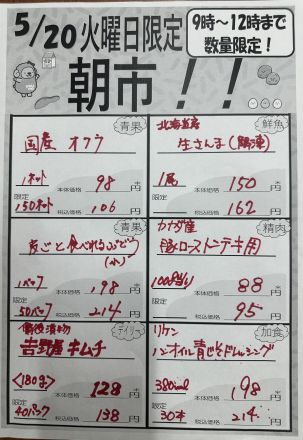 5/20火曜日限定
9時～12時まで
数量限定！
朝市！！
青果
国産 オクラ
1ネット 本体価格 98 円
限定
150ネット 税込価格 106 円
鮮魚
北海道産
生さんま(解凍)
1尾 本体価格 150 円
限定
税込価格 162 円
青果
皮ごと食べれるぶどう
1パック 本体価格 198 円
限定
50パック 税込価格 214 円
精肉
カナダ産
豚ロースとんテキ用
100g当り 本体価格 88 円
限定
税込価格 95 円
デイリー
備後漬物
吉野屋キムチ
<180g> 本体価格 128 円
限定
40パック 税込価格 138 円
加食
リケン
ノンオイル青じそドレッシング
380ml 本体価格 198 円
限定
30本 税込価格 214 円